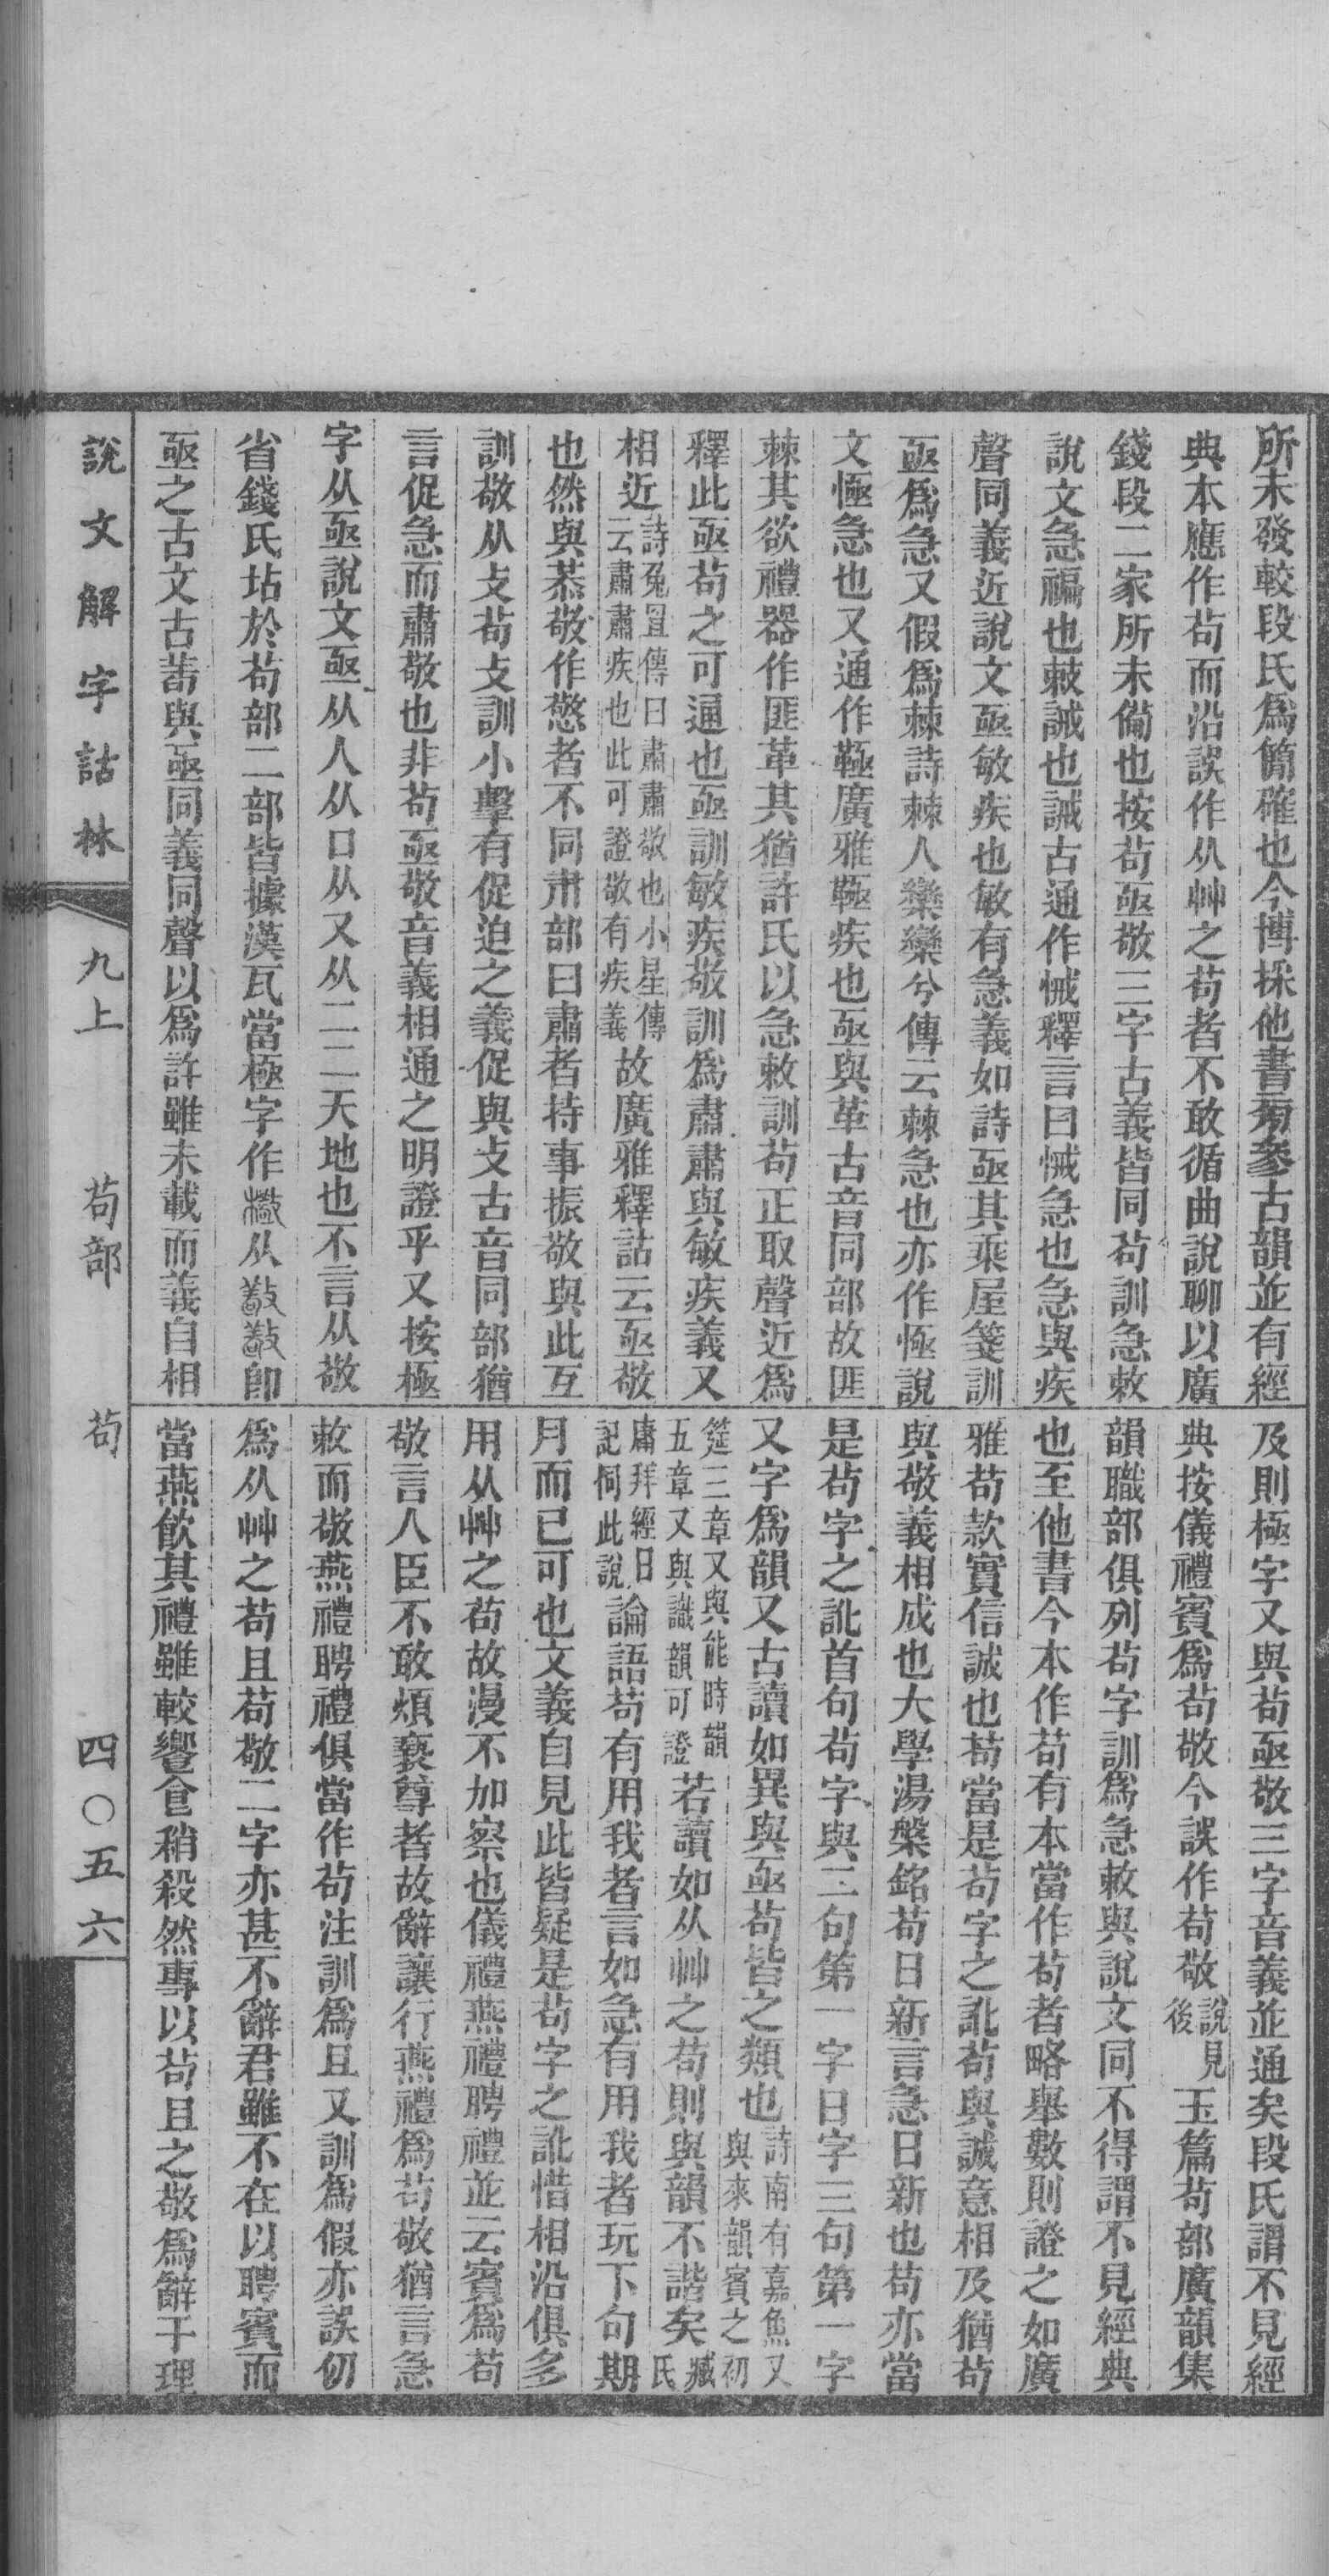 所未發較段氏爲簡確也今博採他書㫄參古韻並有經
典本應作茍而沿誤作从艸之苟者不敢循曲說聊以廣
錢段二家所未僃也按茍亟敬三字古義皆同茍訓急敕
說文急褊也敕誡也誡古通作悈釋言曰悈急也急與疾
聲同義近說文亟敏疾也敏有急義如詩亟其乘屋箋訓
亟爲急又假爲棘詩棘人欒欒兮傳云棘急也亦作㥛說
文㥛急也又通作䩯廣雅䩯疾也亟與革古音同部故匪
棘其欲禮器作匪革其猶許氏以急敕訓茍正取聲近爲
釋此亟茍之可通也亟訓敏疾敬訓爲肅肅與敏疾義又
相近詩兔罝傳曰肅肅敬也小星傳云肅肅疾也此可證敬有疾義故廣雅釋詁云亟敬
也然與恭敬作憼者不同肅部曰肅者持事振敬與此互
訓敬从攴茍攴訓小擊有促迫之義促與攴古音同部猶
言促急而肅敬也非茍亟敬音義相通之明證乎又按極
字从亟說文亟从人从口从又从二二天地也不言从敬
省錢氏坫於茍部二部皆據漢瓦當極字作从卽
亟之古文古與亟同義同聲以爲許雖未載而義自相
及則極字又與茍亟敬三字音義並通矣段氏謂不見經
典按儀禮賓爲茍敬今誤作苟敬說見後玉篇茍部廣韻集
韻職部俱列茍字訓爲急敕與說文同不得謂不見經典
也至他書今本作苟有本當作茍者略舉數則證之如廣
雅苟款實信誠也苟當是茍字之訛茍與誠意相及猶茍
與敬義相成也大學湯槃銘苟日新言急日新也苟亦當
是茍字之訛首句茍字與二句第一字日字三句第一字
又字爲韻又古讀如異與亟茍皆之類也詩南有嘉魚又與來韻賓之初
筵三章又與能時韻五章又與識韻可證若讀如从艸之苟則與韻不諧矣臧氏
庸拜經日記同此說論語苟有用我者言如急有用我者玩下句期
月而已可也文義自見此皆疑是茍字之訛惜相沿俱多
用从艸之苟故漫不加察也儀禮燕禮聘禮並云賓爲苟
敬言人臣不敢煩褻尊者故辭讓行燕禮爲茍敬猶言急
敕而敬燕禮聘禮俱當作茍注訓爲且又訓爲假亦誤仞
爲从艸之苟且苟敬二字亦甚不辭君雖不在以聘賓而
當燕飮其禮雖較饗食稍殺然專以苟且之敬爲辭于理
說文解字詁林
九上
茍部
茍
四〇五六